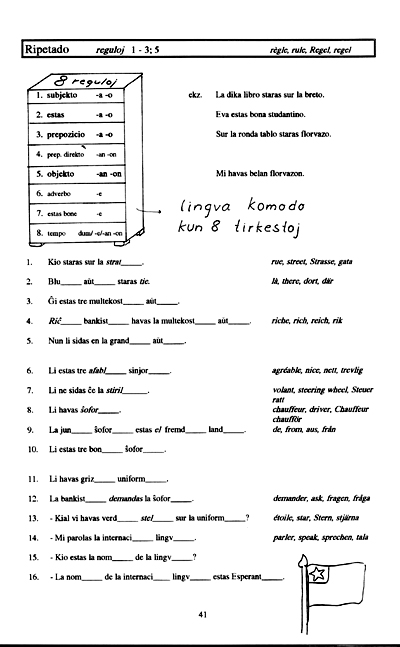 Ripetado reguloj 1 - 3; 5 règle, rule, Regel, regel
8 reguloj
1. subjekto -a -o
2. estas -a -o
3. prepozicio -a -o
4. prep. direkto -an -on
5. objekto -an -on
6. adverbo -e
7. estas bone -e
8. tempo dum/-e/-an -on
ekz. La dika libro staras sur la breto.
Eva estas bona studantino.
Sur la ronda tablo staras florvazo.
Mi havas belan florvazon.
lingva komodo
kun 8 tirkestoj
1. Kio staras sur la strat____. rue, street, Strasse, gata
2. Blu____ aŭt____ staras tie. là, there, dort, där
3. Ĝi estas tre multekost____ aŭt____.
4. Riĉ____ bankist____ havas la multekost____ aŭt____. riche, rich, reich, rik
5. Nun li sidas en la grand____ aŭt____.
6. Li estas tre afabl____ sinjor____. agréable, nice, nett, trevlig
7. Li ne sidas ĉe la stiril____. volant, steering wheel, Steuer
ratt
8. Li havas ŝofor____. chauffeur, driver, Chauffeur
chaufför
9. La jun____ ŝofor____ estas el fremd____ land____. de, from, aus, från
10. Li estas tre bon____ ŝofor____.
11. Li havas griz____ uniform____.
12. La bankist____ demandas la ŝofor____. demander, ask, fragen, fråga
13. - Kial vi havas verd____ stel____ sur la uniform____? étoile, star, Stern, stjärna
14. - Mi parolas la internaci____ lingv____. parler, speak, sprechen, tala
15. - Kio estas la nom____ de la lingv____?
16. - La nom____ de la internaci____ lingv____ estas Esperant____.
41